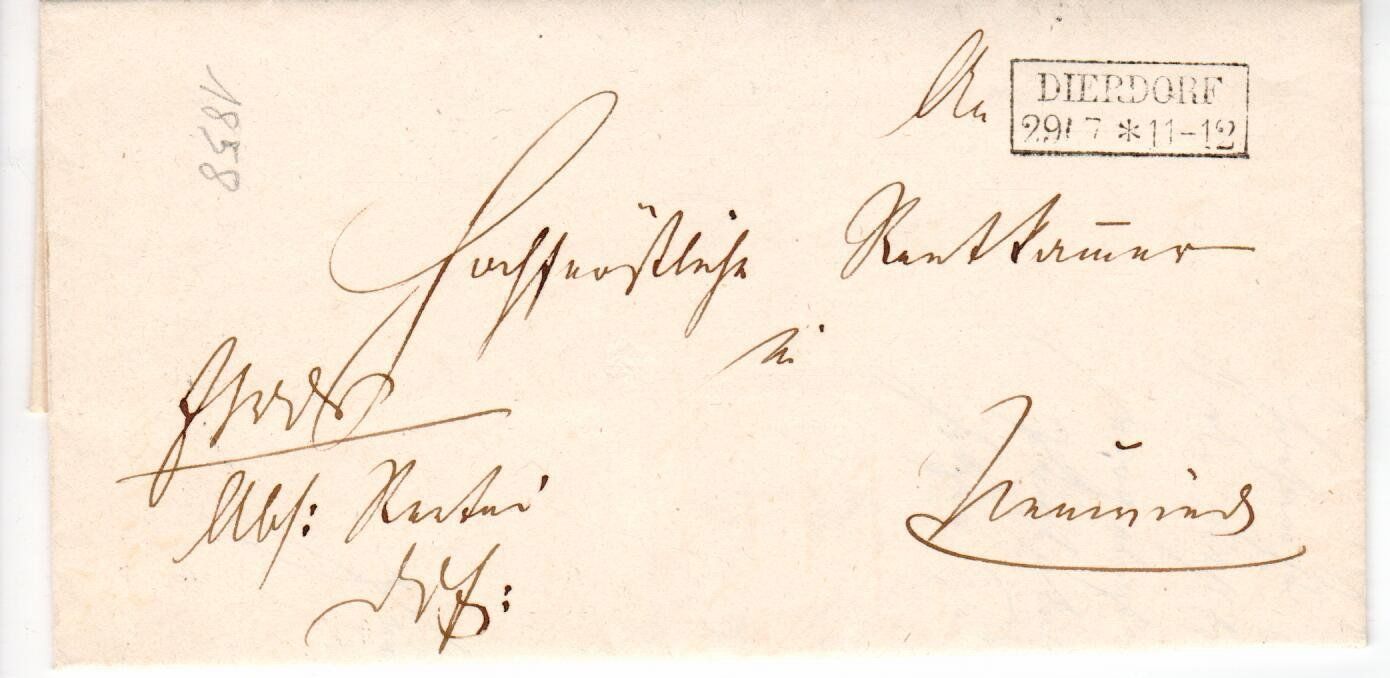 1858
An
DIERDORF
29/7 * 11-12
Hochfürstliche Rentkam̅er
in
Neuwied
Abs: Rentei